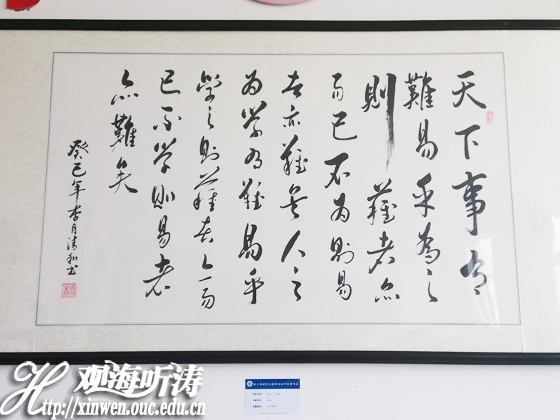 天下事有
難易乎為之
則難者亦
易已不為則易
者亦難矣人之
為学有難易乎
學之則難者亦易
已不学則易者
亦難矣
癸巳年李月清和书
观海听涛
http://xinwen.ouc.edu.cn